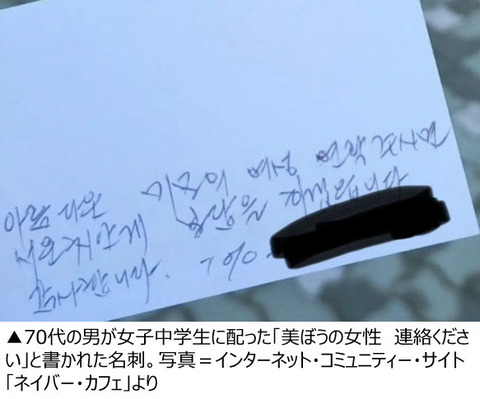 아름다운 미모의 여성 연락 주시면
서운치 안게 하겠읍니다
감사합니다.
▲70代の男が女子中学生に配った「美ぼうの女性　連絡くださ
い」と書かれた名刺。写真＝インターネット・コミュニティー・サイト
「ネイバー・カフェ」より